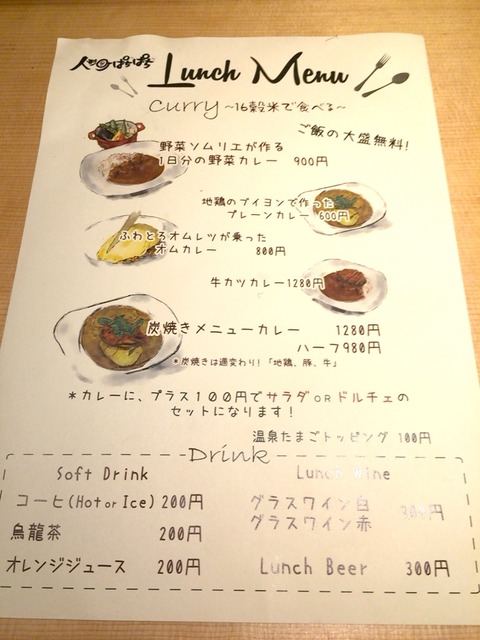 Lunch Menu
curry ～16穀米で食べる～
ご飯の大盛無料！
野菜ソムリエが作る
1日分の野菜カレー 900円
地鶏のブイヨンで作った
プレーンカレー 600円
ふわとろオムレツが乗った
オムカレー 800円
牛カツカレー1280円
炭焼きメニューカレー 1280円
ハーフ980円
*炭焼きは週変わり！「地鶏、豚、牛」
*カレーに、プラス１００円でサラダORドルチェの
セットになります！
温泉たまごトッピング 100円
Drink
Soft Drink
コーヒ(Hot or Ice) 200円
烏龍茶 200円
オレンジジュース 200円
Lunch Wine
グラスワイン白
グラスワイン赤
300円
Lunch Beer 300円